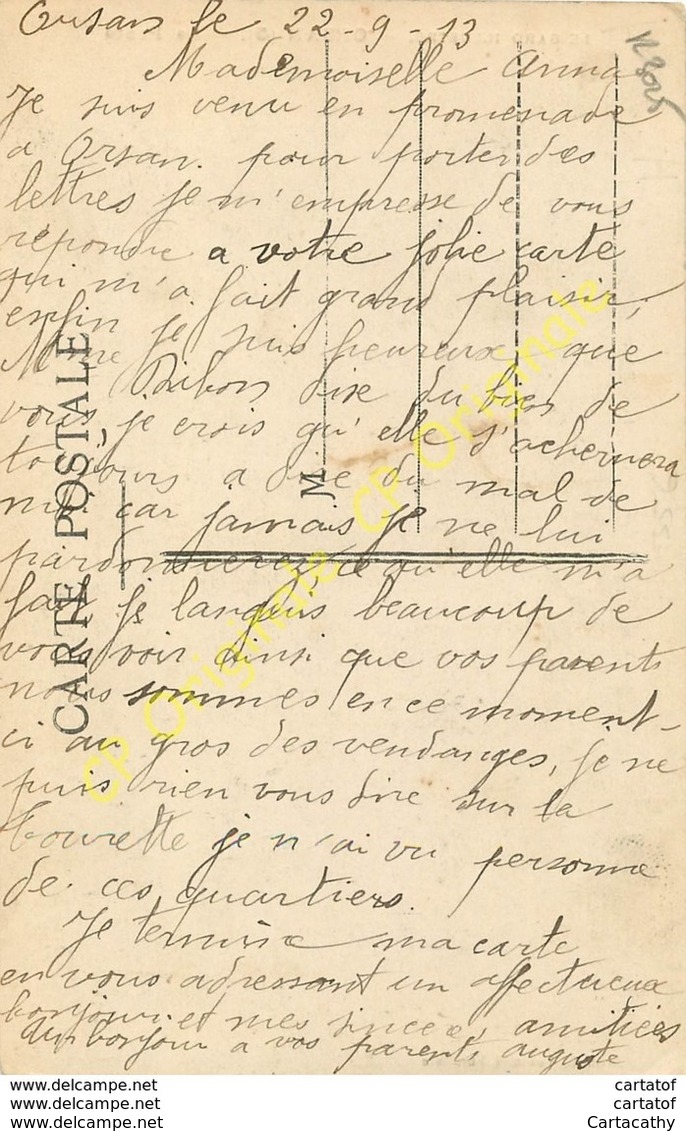 Orsan le 22-9-13
Mademoiselle Anna
Je suis venu en promenade
a Orsan. pour porter des
lettres je m'empresse de vous
repondre a votre jolie carte
qui m'a fait grand plaisir,
enfin je suis heureux que
Mme Ribon dise du bien de
vous je crois qu'elle s'achernera
toujours a dire du mal de
moi car jamais je ne lui
pardonnerez ce qu'elle m'a
fait je languis beaucoup de
vous voir ainsi que vos parents
nous sommes en ce moment-
ci au gros des vendanges, je ne
puis rien vous dire sur la
tourette je n'ai vu personne
de ces quartiers.
Je termine ma carte
en vous adressant un affectueux
bonjour. et mes sincere, amitiées
bonjour a vos parents auguste
CARTE POSTALE
M
CP Originale
CP Originale
cartatof
cartatof
Cartacathy